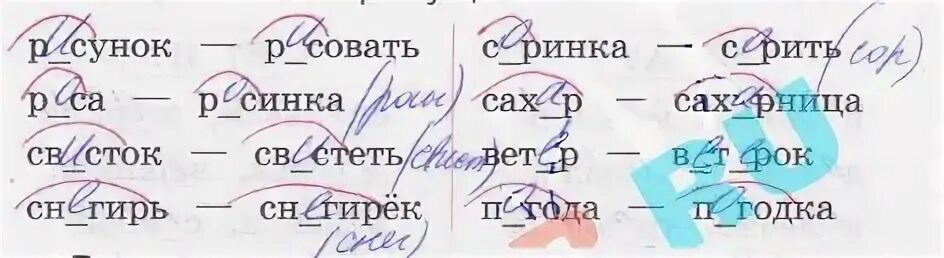 рисунок — рисовать соринка — сорить (сор)
роса — росинка (росы) сахар — сахарница
свисток — свистеть (свист) ветер — ветерок
снегирь — снегирёк (снег) погода — погодка
RU